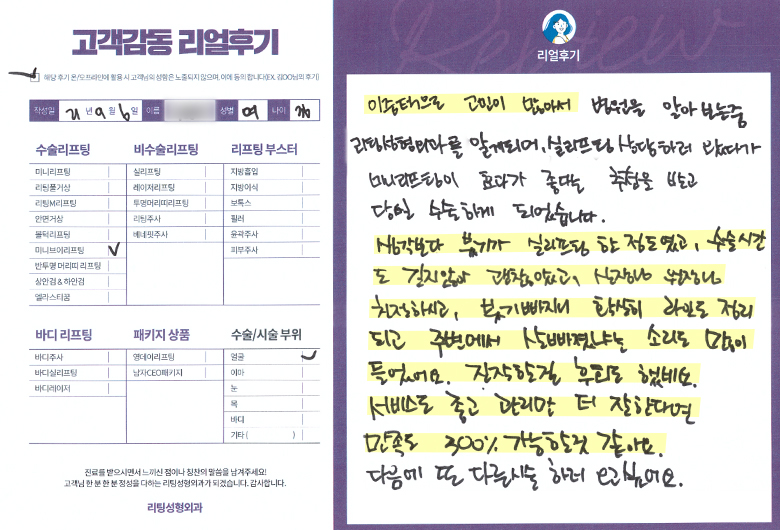 고객감동 리얼후기
해당 후기 온/오프라인에 활용 시 고객님의 성함은 노출되지 않으며, 이에 동의 합니다(EX. 김OO님의 후기)
작성일 21년 9월 6일 이름 성별 여 나이
수술리프팅
미니리프팅
리팅풀거상
리팅M리프팅
안면거상
볼턱리프팅
미니브이리프팅
반투명 머리띠 리프팅
상안검 & 하안검
엘라스티꿈
비수술리프팅
실리프팅
레이저리프팅
투명머리띠리프팅
리팅주사
베네핏주사
리프팅 부스터
지방흡입
지방이식
보톡스
필러
윤곽주사
피부주사
바디 리프팅
바디주사
바디실리프팅
바디레이저
패키지 상품
영데이리프팅
남자CEO패키지
수술/시술 부위
얼굴
이마
눈
목
바디
기타 ( )
진료를 받으시면서 느끼신 점이나 칭찬의 말씀을 남겨주세요!
고객님 한 분 한 분 정성을 다하는 리팅성형외과가 되겠습니다. 감사합니다.
리팅성형외과
Review
리얼후기
이중턱으로 고민이 많아서 병원을 알아보는중
리팅성형외과를 알게되어, 실리프팅 상담하러 왔다가
미니리프팅이 효과가 좋다는 추천을 받고
당일 수술하게 되었습니다.
생각보다 붓기가 실리프팅 한 정도였고, 수술시간
도 길지않아 괜찮았었고, 실장님 원장님
친절하시고, 붓기빠지니 확실히 라인도 정리
되고 주변에서 살빠졌냐는 소리도 많이
들었어요. 진작할걸 후회도 했네요.
서비스도 좋고 관리만 더 잘한다면
만족도 300% 가능할것 같아요.
다음에 또 다른시술 하러 오고싶어요.